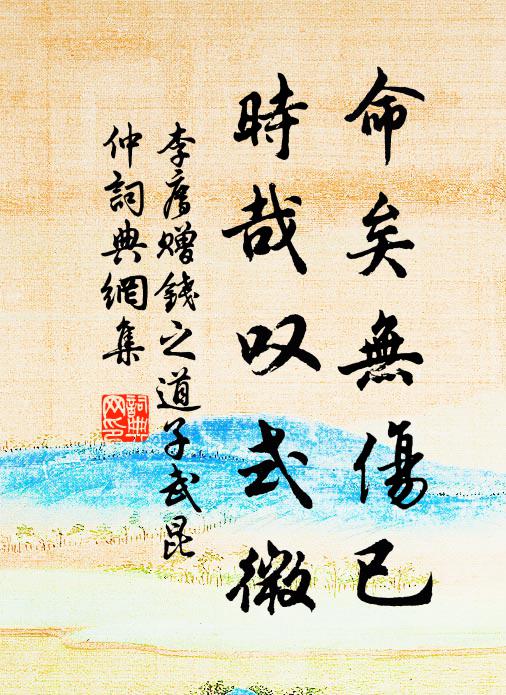 命矣無傷已
時哉叹式微
李廌赠錢之道子武昆
仲詞典網集
詞典網印